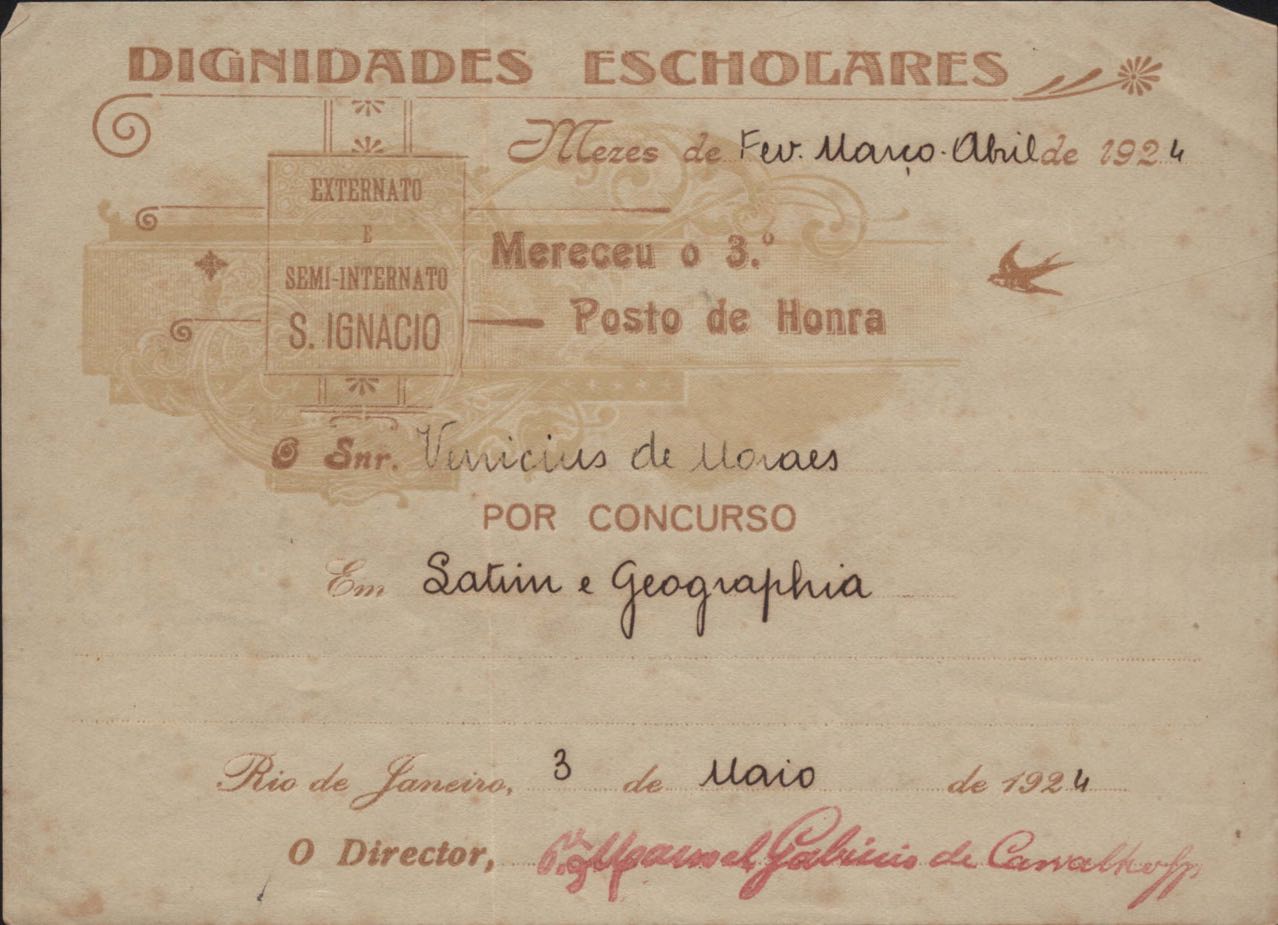 DIGNIDADES ESCHOLARES
Mezes de Fev. Março-Abril de 1924
EXTERNATO
E
SEMI-INTERNATO
S. IGNACIO
Mereceu o 3.º
Posto de Honra
O Snr. Venicius de Moraes
POR CONCURSO
Em Latim e Geographia
Rio de Janeiro, 3 de Maio de 1924
O Director, Manoel de Carvalho